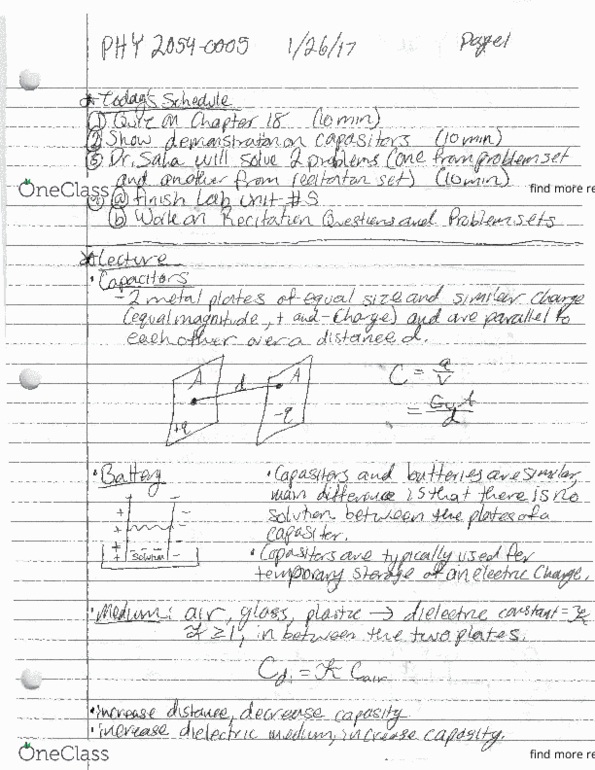 PHY 2054-0005 1/26/17 Page 1
* Today's Schedule
① Quiz on Chapter 18 (10 min)
② Show demonstration on capasitors (10 min)
③ Dr. Saha will solve 2 problems (one from problem set
and another from recitation set) (10 min)
OneClass find more re
④ ⓐ finish Lab Unit #3
ⓑ Work on Recitation Questions and Problem sets
* Lecture
• Capacitors
- 2 metal plates of equal size and similar charge
(equal magnitude, + and - charge) and are parallel to
each other over a distance d.
A d A
+q -q
C = q/V
= ϵ₀A/d
• Battery
+ + + + - - - -
solution
• Capasitors and batteries are similar,
main difference is that there is no
solution between the plates of a
capasiter.
• Capasitors are typically used for
temporary storage of an electric charge.
• Medium: air, glass, plastic → dielectric constant = K
K ≥ 1, in between the two plates.
Cdi = K Cair
• increase distance, decrease capasity
• increase dielectric medium, increase capasity.
OneClass find more re